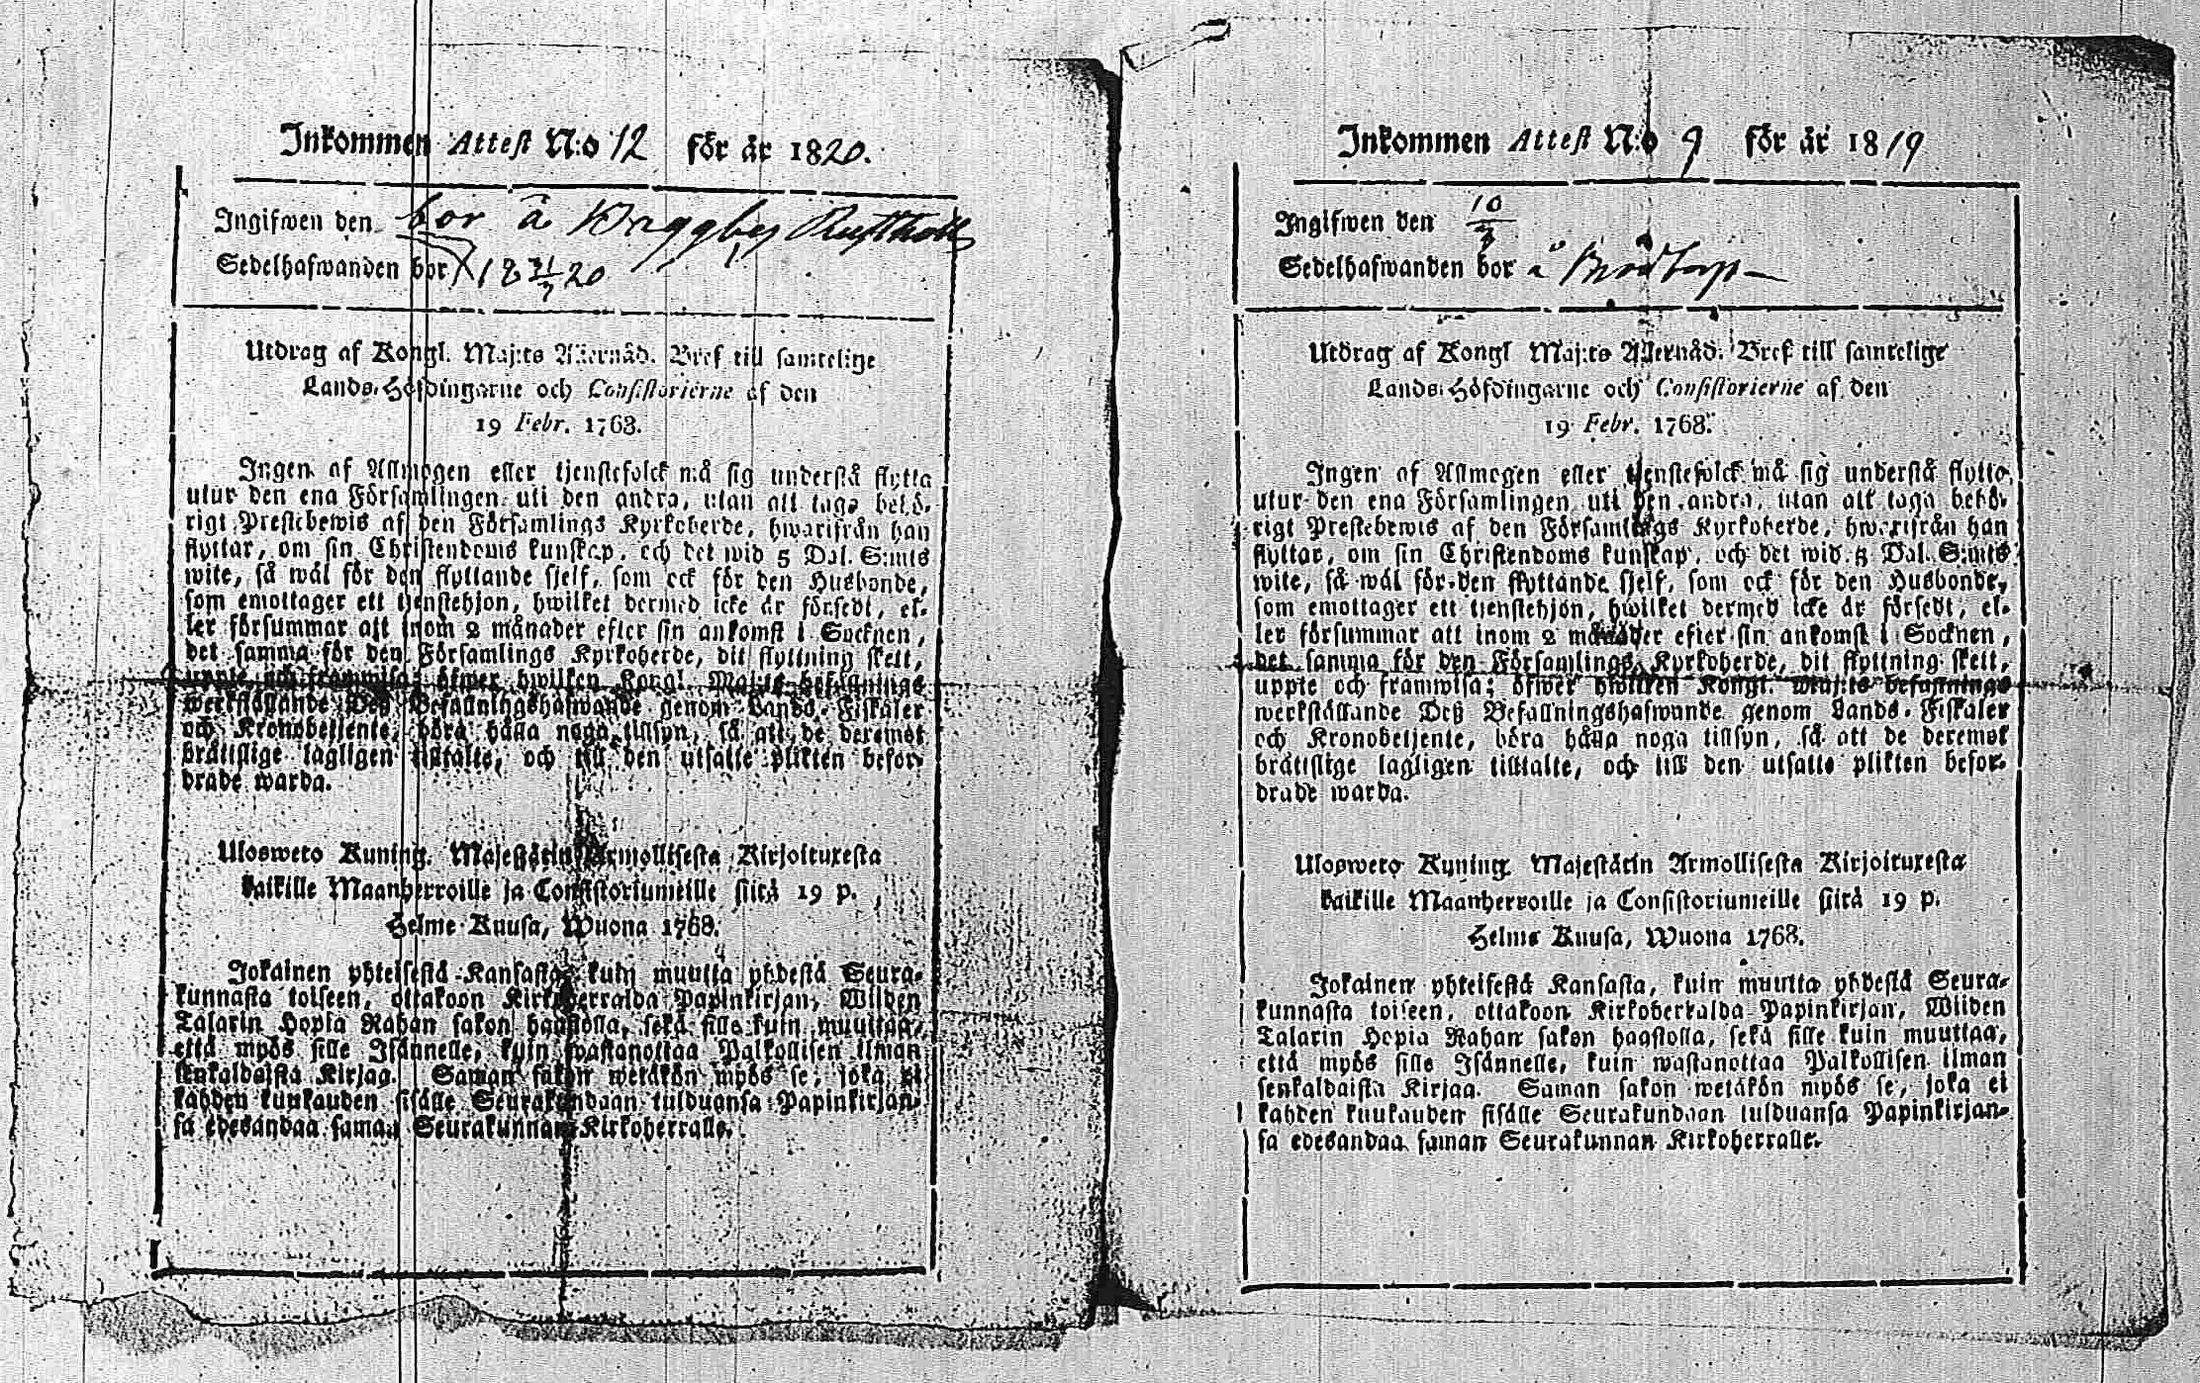 Inkommen Attest N:o 12 för år 1820.
Ingifwen den bor å Rusthåll
Sedelhafwanden bor 18 31/7 20
Utdrag af Kongl. Maj:ts Allernåd. Bref till samtelige
Lands-Höfdingarne och Consistorierne af den
19 Febr. 1768.
Ingen af Allmogen eller tjenstefolck må sig understå flytta
utur den ena Församlingen uti den andra, utan att taga behö-
rigt Prestebewis af den Församlings Kyrkoherde, hwarifrån han
flyttar, om sin Christendoms kunskap, och det wid 5 Dal. S:mts
wite, så wäl för den flyttande sjelf, som ock för den Husbonde,
som emottager ett tjenstehjon, hwilket dermed icke är försedt, el-
ler försummar att inom 2 månader efter sin ankomst i Socknen,
det samma för den Församlings Kyrkoherde, dit flyttning skett,
uppte och framwisa; öfwer hwilken Kongl. Maj:ts befallnings
werkställande Deß Befallningshafwande genom Lands-Fiskaler
och Kronobetjente, böra hålla noga tillsyn, så att de deremot
bråttslige lagligen tilltalte, och till den utsatte plikten befor-
drade warda.
Ulosweto Kuning. Majestätin Armollisesta Kirjoituxesta
kaikille Maanherroille ja Consistoriumeille siitä 19 p.
Helme Kuusa, Wuona 1768.
Jokainen yhteisestä Kansasta, kuin muutta yhdestä Seura-
kunnasta toiseen, ottakoon Kirkoherralda Papinkirjan, Wiiden
Talarin Hopia Rahan sakon haastolla, sekä sille kuin muuttaa,
että myös sille Isännelle, kuin wastanottaa Palkollisen ilman
senkaldaista Kirjaa. Saman sakon wetäkön myös se, joka ei
kahden kuukauden sisälle Seurakundaan tulduansa Papinkirjan-
sa edesandaa saman Seurakunnan Kirkoherralle.
Inkommen Attest N:o 9 för år 1819
Ingifwen den 10/7
Sedelhafwanden bor å
Utdrag af Kongl Maj:ts Allernåd. Bref till samtelige
Lands-Höfdingarne och Consistorierne af den
19 Febr. 1768.
Ingen af Allmogen eller tjenstefolck må sig understå flytta
utur den ena Församlingen uti den andra, utan att taga behö-
rigt Prestebewis af den Församlings Kyrkoherde, hwarifrån han
flyttar, om sin Christendoms kunskap, och det wid 5 Dal. S:mts
wite, så wäl för den flyttande sjelf, som ock för den Husbonde,
som emottager ett tjenstehjon, hwilket dermed icke är försedt, el-
ler försummar att inom 2 månader efter sin ankomst i Socknen,
det samma för den Församlings Kyrkoherde, dit flyttning skett,
uppte och framwisa; öfwer hwilken Kongl. Maj:ts befallnings
werkställande Deß Befallningshafwande genom Lands-Fiskaler
och Kronobetjente, böra hålla noga tillsyn, så att de deremot
bråttslige lagligen tilltalte, och till den utsatte plikten befor-
drade warda.
Ulosweto Kuning. Majestätin Armollisesta Kirjoituxesta
kaikille Maanherroille ja Consistoriumeille siitä 19 p.
Helme Kuusa, Wuona 1768.
Jokainen yhteisestä Kansasta, kuin muutta yhdestä Seura-
kunnasta toiseen, ottakoon Kirkoherralda Papinkirjan, Wiiden
Talarin Hopia Rahan sakon haastolla, sekä sille kuin muuttaa,
että myös sille Isännelle, kuin wastanottaa Palkollisen ilman
senkaldaista Kirjaa. Saman sakon wetäkön myös se, joka ei
kahden kuukauden sisälle Seurakundaan tulduansa Papinkirjan-
sa edesandaa saman Seurakunnan Kirkoherralle.